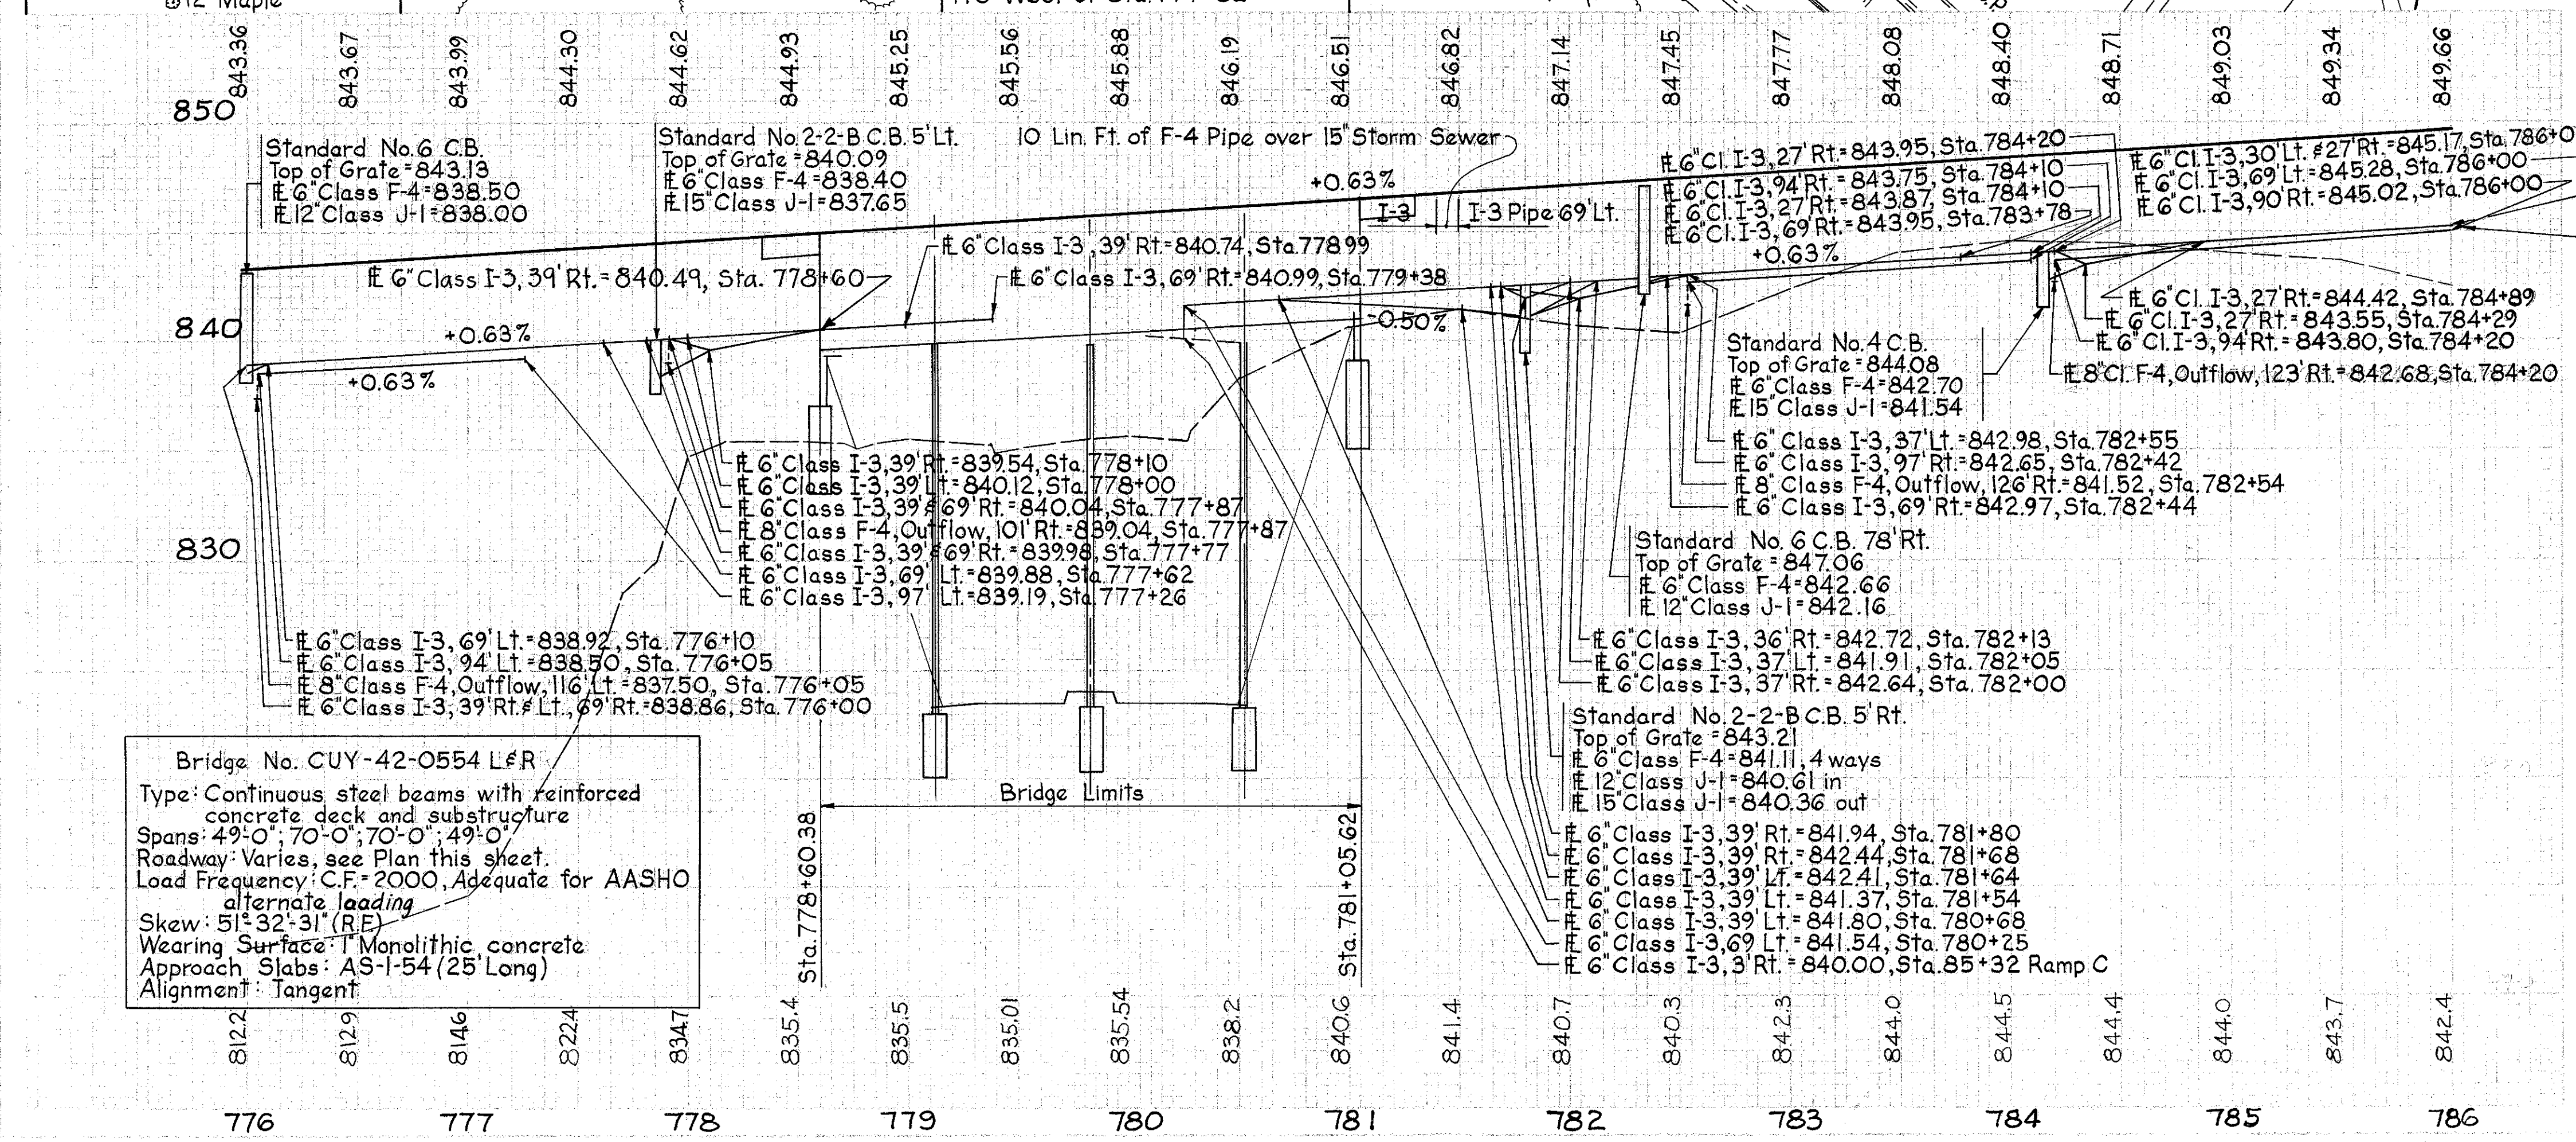 843.36
843.67
843.99
844.30
844.62
844.93
845.25
845.56
845.88
846.19
846.51
846.82
847.14
847.45
847.77
848.08
848.40
848.71
849.03
849.34
849.66
850
840
830
Standard No.6 C.B.
Top of Grate=843.13
℄ 6"Class F-4=838.50
℄ 12"Class J-1=838.00
Standard No.2-2-B C.B. 5'Lt.
Top of Grate=840.09
℄ 6"Class F-4=838.40
℄ 15"Class J-1=837.65
10 Lin. Ft. of F-4 Pipe over 15"Storm Sewer
+0.63%
I-3
I-3 Pipe 69'Lt.
℄ 6"Cl. I-3, 27'Rt.=843.95, Sta. 784+20
℄ 6"Cl. I-3, 94'Rt.=843.75, Sta. 784+10
℄ 6"Cl. I-3, 27'Rt.=843.87, Sta. 784+10
℄ 6"Cl. I-3, 69'Rt.=843.95, Sta. 783+78
℄ 6"Cl. I-3, 30'Lt. & 27'Rt.=845.17, Sta. 786+0
℄ 6"Cl. I-3, 69'Lt.=845.28, Sta. 786+00
℄ 6"Cl. I-3, 90'Rt.=845.02, Sta. 786+00
℄ 6"Class I-3, 39'Rt.=840.74, Sta.778 99
℄ 6"Class I-3, 39'Rt.=840.49, Sta. 778+60
℄ 6"Class I-3, 69'Rt.=840.99, Sta.779+38
+0.63%
+0.63%
-0.50%
+0.63%
℄ 6"Cl. I-3, 27'Rt.=844.42, Sta. 784+89
℄ 6"Cl. I-3, 27'Rt.=843.55, Sta. 784+29
℄ 6"Cl. I-3, 94'Rt.=843.80, Sta. 784+20
℄ 8"Cl. F-4, Outflow, 123'Rt.=842.68, Sta. 784+20
Standard No.4 C.B.
Top of Grate=844.08
℄ 6"Class F-4=842.70
℄ 15"Class J-1=841.54
℄ 6"Class I-3, 37'Lt.=842.98, Sta.782+55
℄ 6"Class I-3, 97'Rt.=842.65, Sta.782+42
℄ 8"Class F-4, Outflow, 126'Rt.=841.52, Sta. 782+54
℄ 6"Class I-3, 69'Rt.=842.97, Sta.782+44
℄ 6"Class I-3, 39'Rt.=839.54, Sta. 778+10
℄ 6"Class I-3, 39'Lt.=840.12, Sta. 778+00
℄ 6"Class I-3, 39'& 69'Rt.=840.04, Sta.777+87
℄ 8"Class F-4, Outflow, 101'Rt.=839.04, Sta.777+87
℄ 6"Class I-3, 39'& 69'Rt.=839.98, Sta.777+77
℄ 6"Class I-3, 69' Lt.=839.88, Sta.777+62
℄ 6"Class I-3, 97' Lt.=839.19, Sta.777+26
Standard No. 6 C.B. 78'Rt.
Top of Grate=847.06
℄ 6"Class F-4=842.66
℄ 12"Class J-1=842.16
℄ 6"Class I-3, 69'Lt.=838.92, Sta.776+10
℄ 6"Class I-3, 94'Lt.=838.50, Sta.776+05
℄ 8"Class F-4, Outflow, 116'Lt.=837.50, Sta.776+05
℄ 6"Class I-3, 39'Rt.& Lt., 69'Rt.=838.86, Sta.776+00
℄ 6"Class I-3, 36'Rt.=842.72, Sta.782+13
℄ 6"Class I-3, 37'Lt.=841.91, Sta.782+05
℄ 6"Class I-3, 37'Rt.=842.64, Sta.782+00
Standard No.2-2-B C.B. 5'Rt.
Top of Grate=843.21
℄ 6"Class F-4=841.11, 4 ways
℄ 12"Class J-1=840.61 in
℄ 15"Class J-1=840.36 out
℄ 6"Class I-3, 39'Rt.=841.94, Sta.781+80
℄ 6"Class I-3, 39'Rt.=842.44, Sta.781+68
℄ 6"Class I-3, 39'Lt.=842.41, Sta.781+64
℄ 6"Class I-3, 39'Lt.=841.37, Sta.781+54
℄ 6"Class I-3, 39'Lt.=841.80, Sta.780+68
℄ 6"Class I-3, 69 Lt.=841.54, Sta.780+25
℄ 6"Class I-3, 3'Rt.=840.00, Sta.85+32 Ramp C
Bridge No. CUY-42-0554 L&R
Type: Continuous steel beams with reinforced
concrete deck and substructure
Spans: 49'-0"; 70'-0"; 70'-0"; 49'-0"
Roadway: Varies, see Plan this sheet.
Load Frequency: C.F.=2000, Adequate for AASHO
alternate loading
Skew: 51°-32'-31" (R.F.)
Wearing Surface: 1" Monolithic concrete
Approach Slabs: AS-1-54 (25'Long)
Alignment: Tangent
Bridge Limits
Sta. 778+60.38
Sta. 781+05.62
812.2
812.9
814.6
822.4
834.7
835.4
835.5
835.01
835.54
838.2
840.6
841.4
840.7
840.3
842.3
844.0
844.5
844.4
844.0
843.7
842.4
776
777
778
779
780
781
782
783
784
785
786